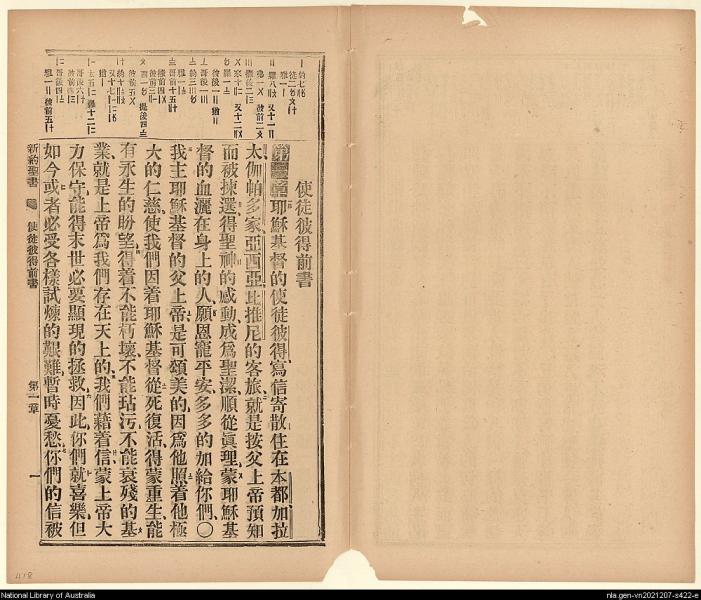 使徒彼得前書
第一章耶穌基督的使徒彼得、寫信寄散住在本都加拉
太伽帕多家、亞西亞、比推尼的客旅、就是按父上帝預知
而被揀選得聖神的感動成爲聖潔、順從眞理、蒙耶穌基
督的血灑在身上的人、願恩寵平安多多的加給你們、〇
我主耶穌基督的父上帝、是可頌美的、因爲他照着他極
大的仁慈、使我們因着耶穌基督從死復活、得蒙重生、能
有永生的盼望、得着不能朽壞、不能玷污、不能衰殘的基
業、就是上帝爲我們存在天上的、我們藉着信、蒙上帝大
力保守、能得末世必要顯現的拯救、因此你們就喜樂、但
如今或者必受各樣試煉的艱難、暫時憂愁、你們的信被
新約聖書
使徒彼得前書
第一章
一
418
National Library of Australia
nla.gen-vn2021207-s422-e